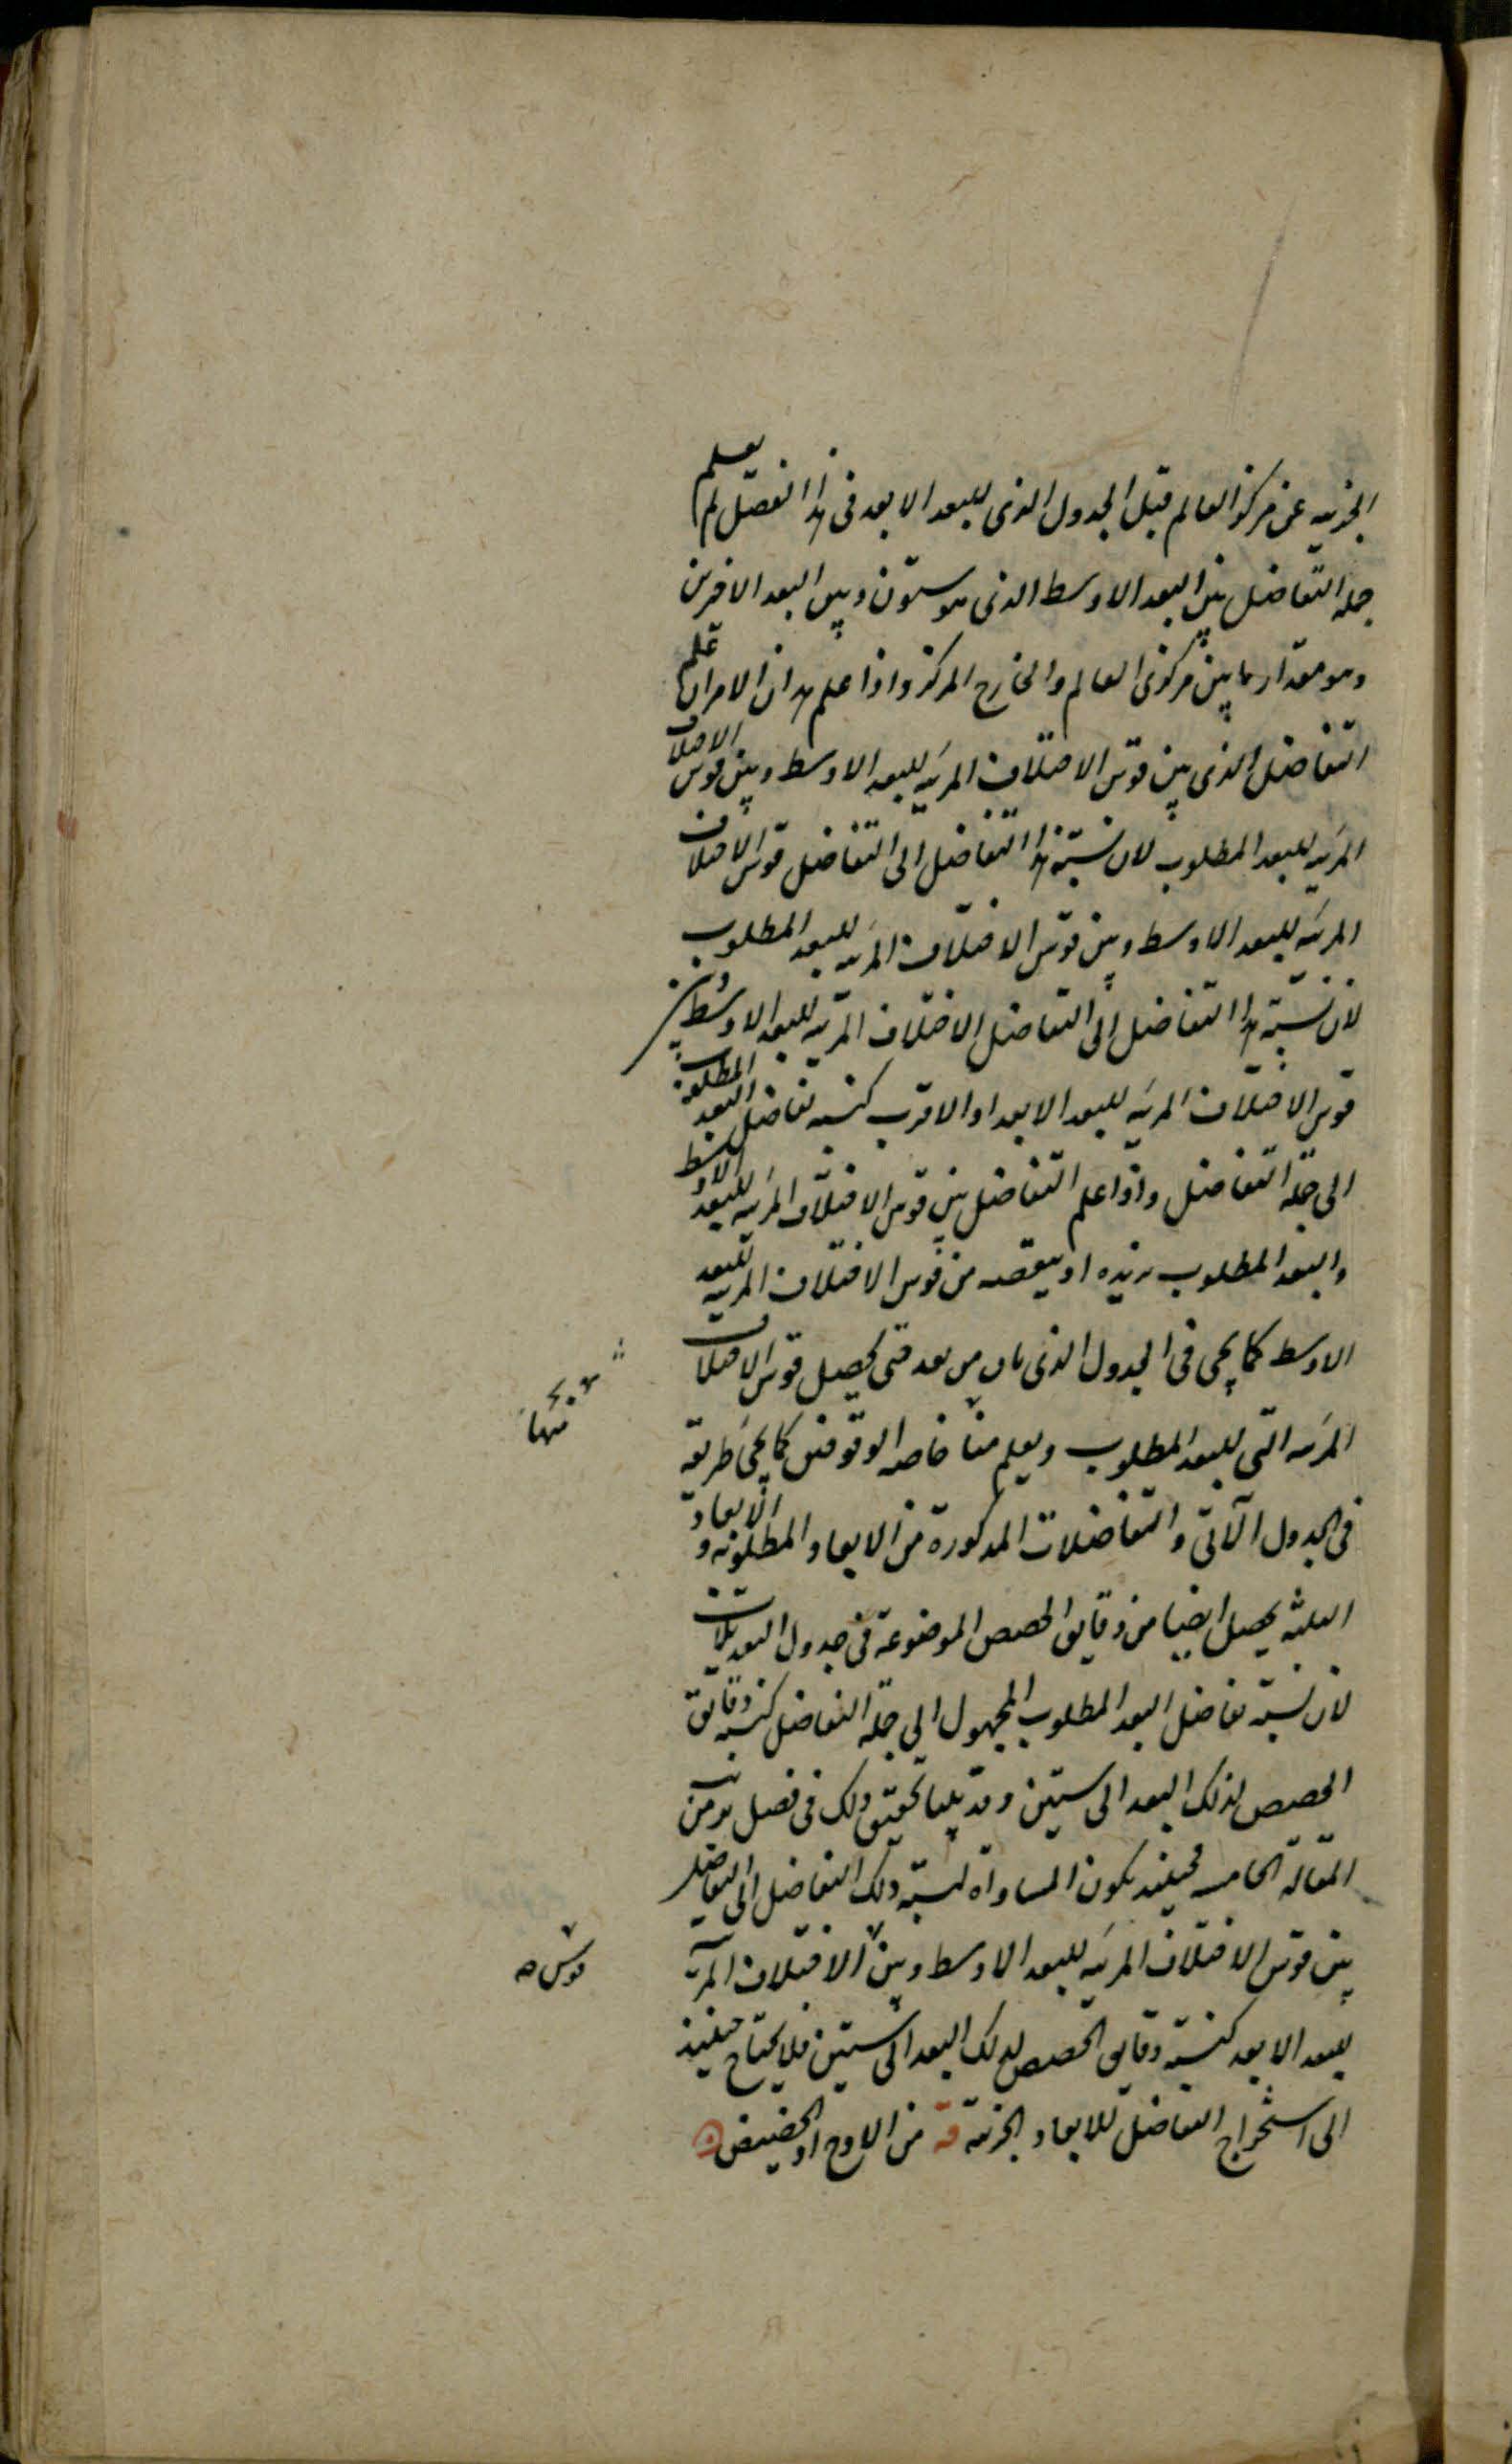 الجزئيه عن مركز العالم قبل الجدول الذى للبعد الابعد فى هذا الفصل ثم يعلم
جملة التفاضل بين البعد الاوسط الذى هو ستون وبين البعد الاخرين
وهو مقدار ما بين مركزى العالم والخارج المركز واذا علم هذان الامران علم
التفاضل الذى بين قوس الاختلاف المرئيه للبعد الاوسط وبين قوس الاختلاف
المرئيه للبعد المطلوب لان نسبة هذا التفاضل الى التفاضل قوس الاختلاف
المرئيه للبعد الاوسط وبين قوس الاختلاف المرئيه للبعد المطلوب
لان نسبة هذا التفاضل الى التفاضل الاختلاف المرئيه للبعد الاوسط وبين
قوس الاختلاف المرئيه للبعد الابعد او الاقرب كنسبة تفاضل البعد المطلوب
الى جملة التفاضل واذا علم التفاضل بين قوس الاختلاف المرئيه للبعد الاوسط
والبعد المطلوب نزيده او ينقصه من قوس الاختلاف المرئيه للبعد
الاوسط كما يجى فى الجدول الذى من بعد حتى يحصل قوس الاختلاف
المرئيه التى للبعد المطلوب ويعلم منها خاصه الوقوفين كما يجئ طريقه
فى الجدول الآتى والتفاضلات المذكورة من الابعاد المطلوبة و الابعاد
الثلثه يحصل ايضا من دقايق الحصص الموضوعة فى جدول التعديلات
لان نسبة تفاضل البعد المطلوب المجهول الى جملة التفاضل كنسبة دقايق
الحصص لذلك البعد الى ستين وقد بينا تحقيق ذلك فى فصل من
المقالة الخامسه فحينئذ يكون المساواة لنسبة ذلك التفاضل الى التفاضل
بين قوس الاختلاف المرئيه للبعد الاوسط وبين الاختلاف المرئيه
للبعد الابعد كنسبة دقايق الحصص لذلك البعد الى ستين فلا يحتاج حينئذ
الى استخراج التفاضل للابعاد الجزئية من الاوج او الحضيض
منها
قوس صه